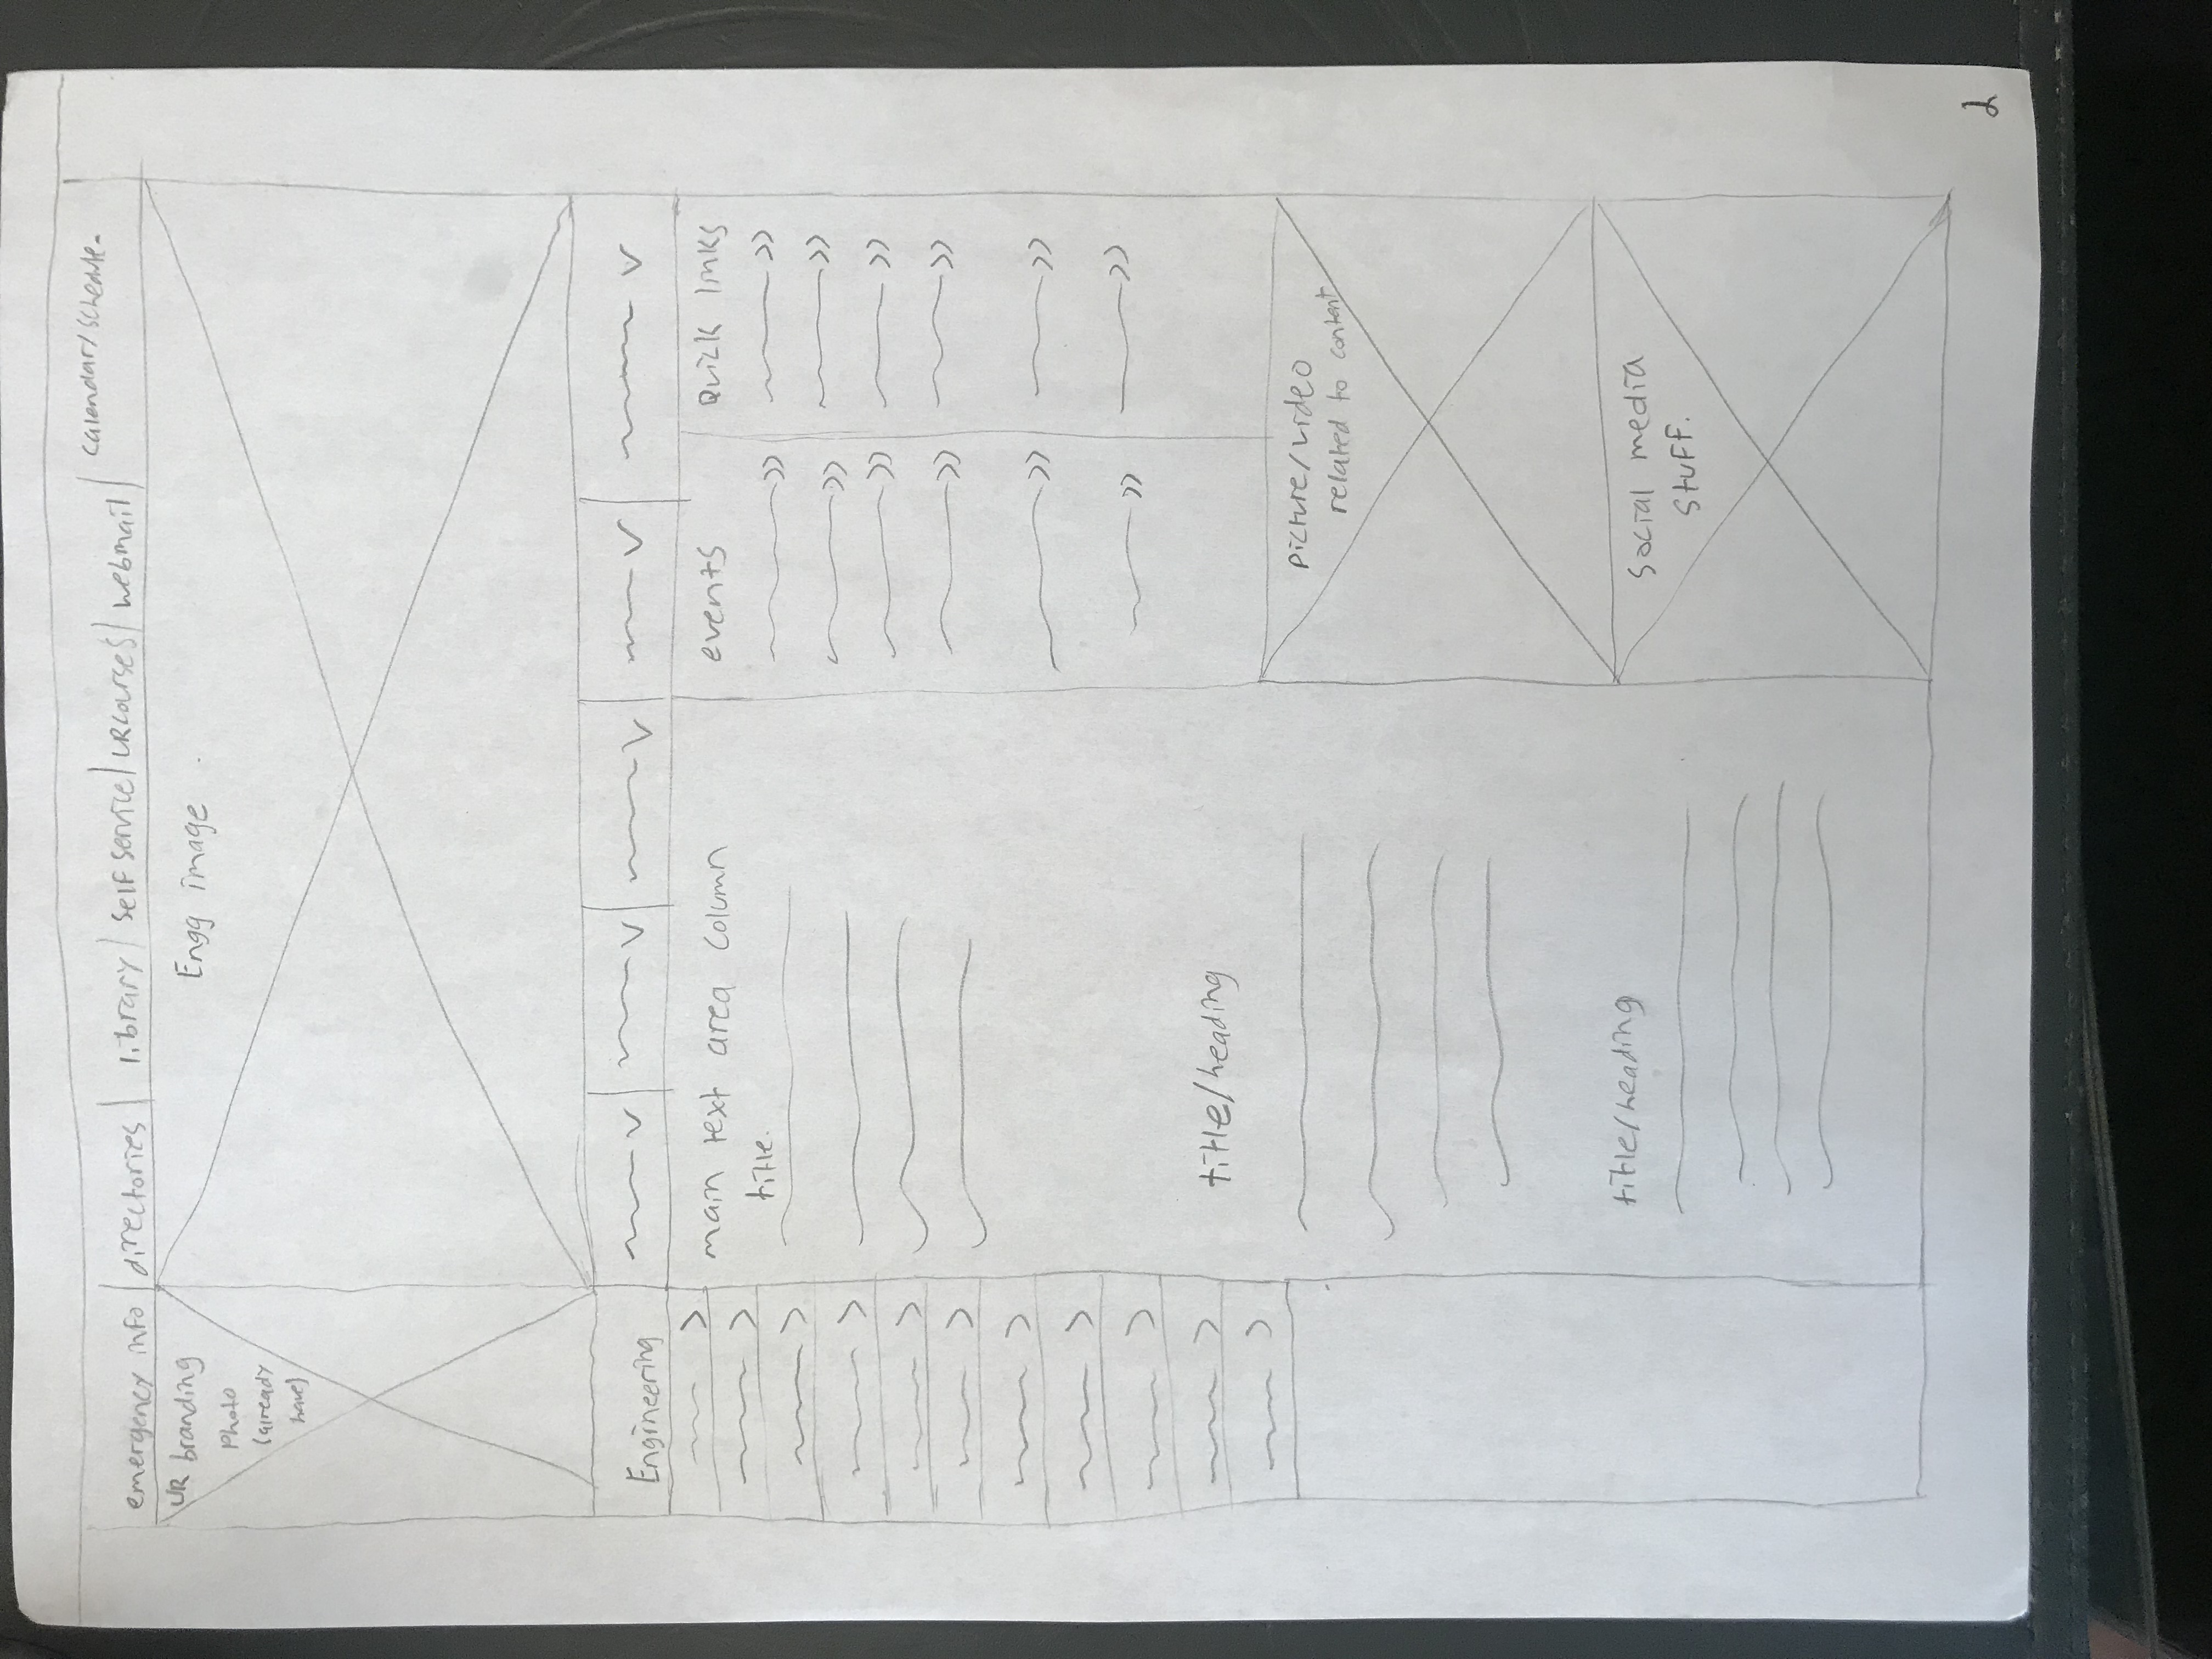 emergency info | directories | library | self service | URcourses | webmail | calendar/schedule.
UR branding
Photo
(already
have)
Engg image
Engineering
main text area column
title.
events
Quick links
title/heading
picture/video
related to content
title/heading
social media
stuff.
2